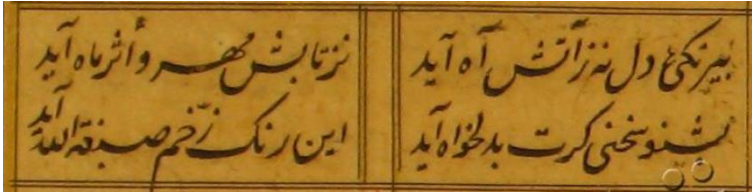 بیرنگی دل نه ز آتش آه آید
نز تابش مهر و اثر ماه آید
بشنو سخنی کرت بدلخواه آید
این رنگ ز خم صبغة الله آید